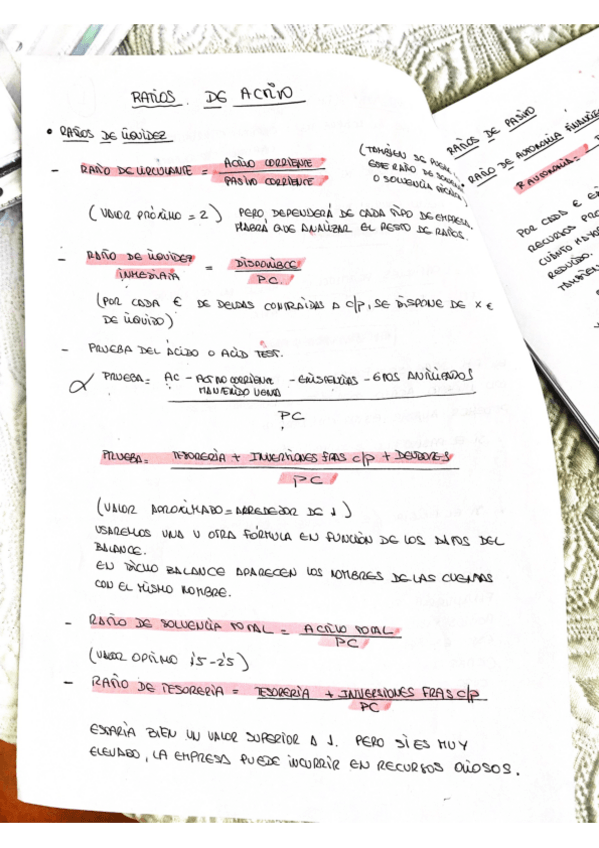 RATIOS DE ACTIVO
• RATIOS DE LIQUIDEZ
- RATIO DE CIRCULANTE = ACTIVO CORRIENTE
PASIVO CORRIENTE
(TAMBIÉN SE PUEDE
ESTE RATIO DE
O SOLVENCIA
(VALOR PRÓXIMO = 2) PERO DEPENDERÁ DE CADA TIPO DE EMPRESA.
HABRÁ QUE ANALIZAR EL RESTO DE RATIOS.
- RATIO DE LIQUIDEZ
INMEDIATA = DISPONIBLE
P.C.
(POR CADA € DE DEUDAS CONTRAIDAS A C/P, SE DISPONE DE X €
DE LIQUIDO)
- PRUEBA DEL ÁCIDO O ACID TEST.
PRUEBA = AC - ACTIVO CORRIENTE - EXISTENCIAS - GTOS ANTICIPADOS
MANTENIDO VENTA
PC
PRUEBA = TESORERIA + INVERSIONES FRAS C/P + DEUDORES
PC
(VALOR APROXIMADO = ALREDEDOR DE 1)
USAREMOS UNA U OTRA FÓRMULA EN FUNCIÓN DE LOS DATOS DEL
BALANCE.
EN DICHO BALANCE APARECEN LOS NOMBRES DE LAS CUENTAS
CON EL MISMO NOMBRE.
- RATIO DE SOLVENCIA TOTAL = ACTIVO TOTAL
PC
(VALOR OPTIMO 1'5 - 2'5)
- RATIO DE TESORERIA = TESORERIA + INVERSIONES FRAS C/P
PC
ESTARIA BIEN UN VALOR SUPERIOR A 1. PERO SI ES MUY
ELEVADO, LA EMPRESA PUEDE INCURRIR EN RECURSOS OCIOSOS.
RATIOS DE PASIVO
• RATIO DE AUTONOMÍA FINANCIERA
R. AUTONOMIA =
POR CADA €
RECURSOS
CUANTO MAYOR
REDUCIDO.
TAMBIÉN